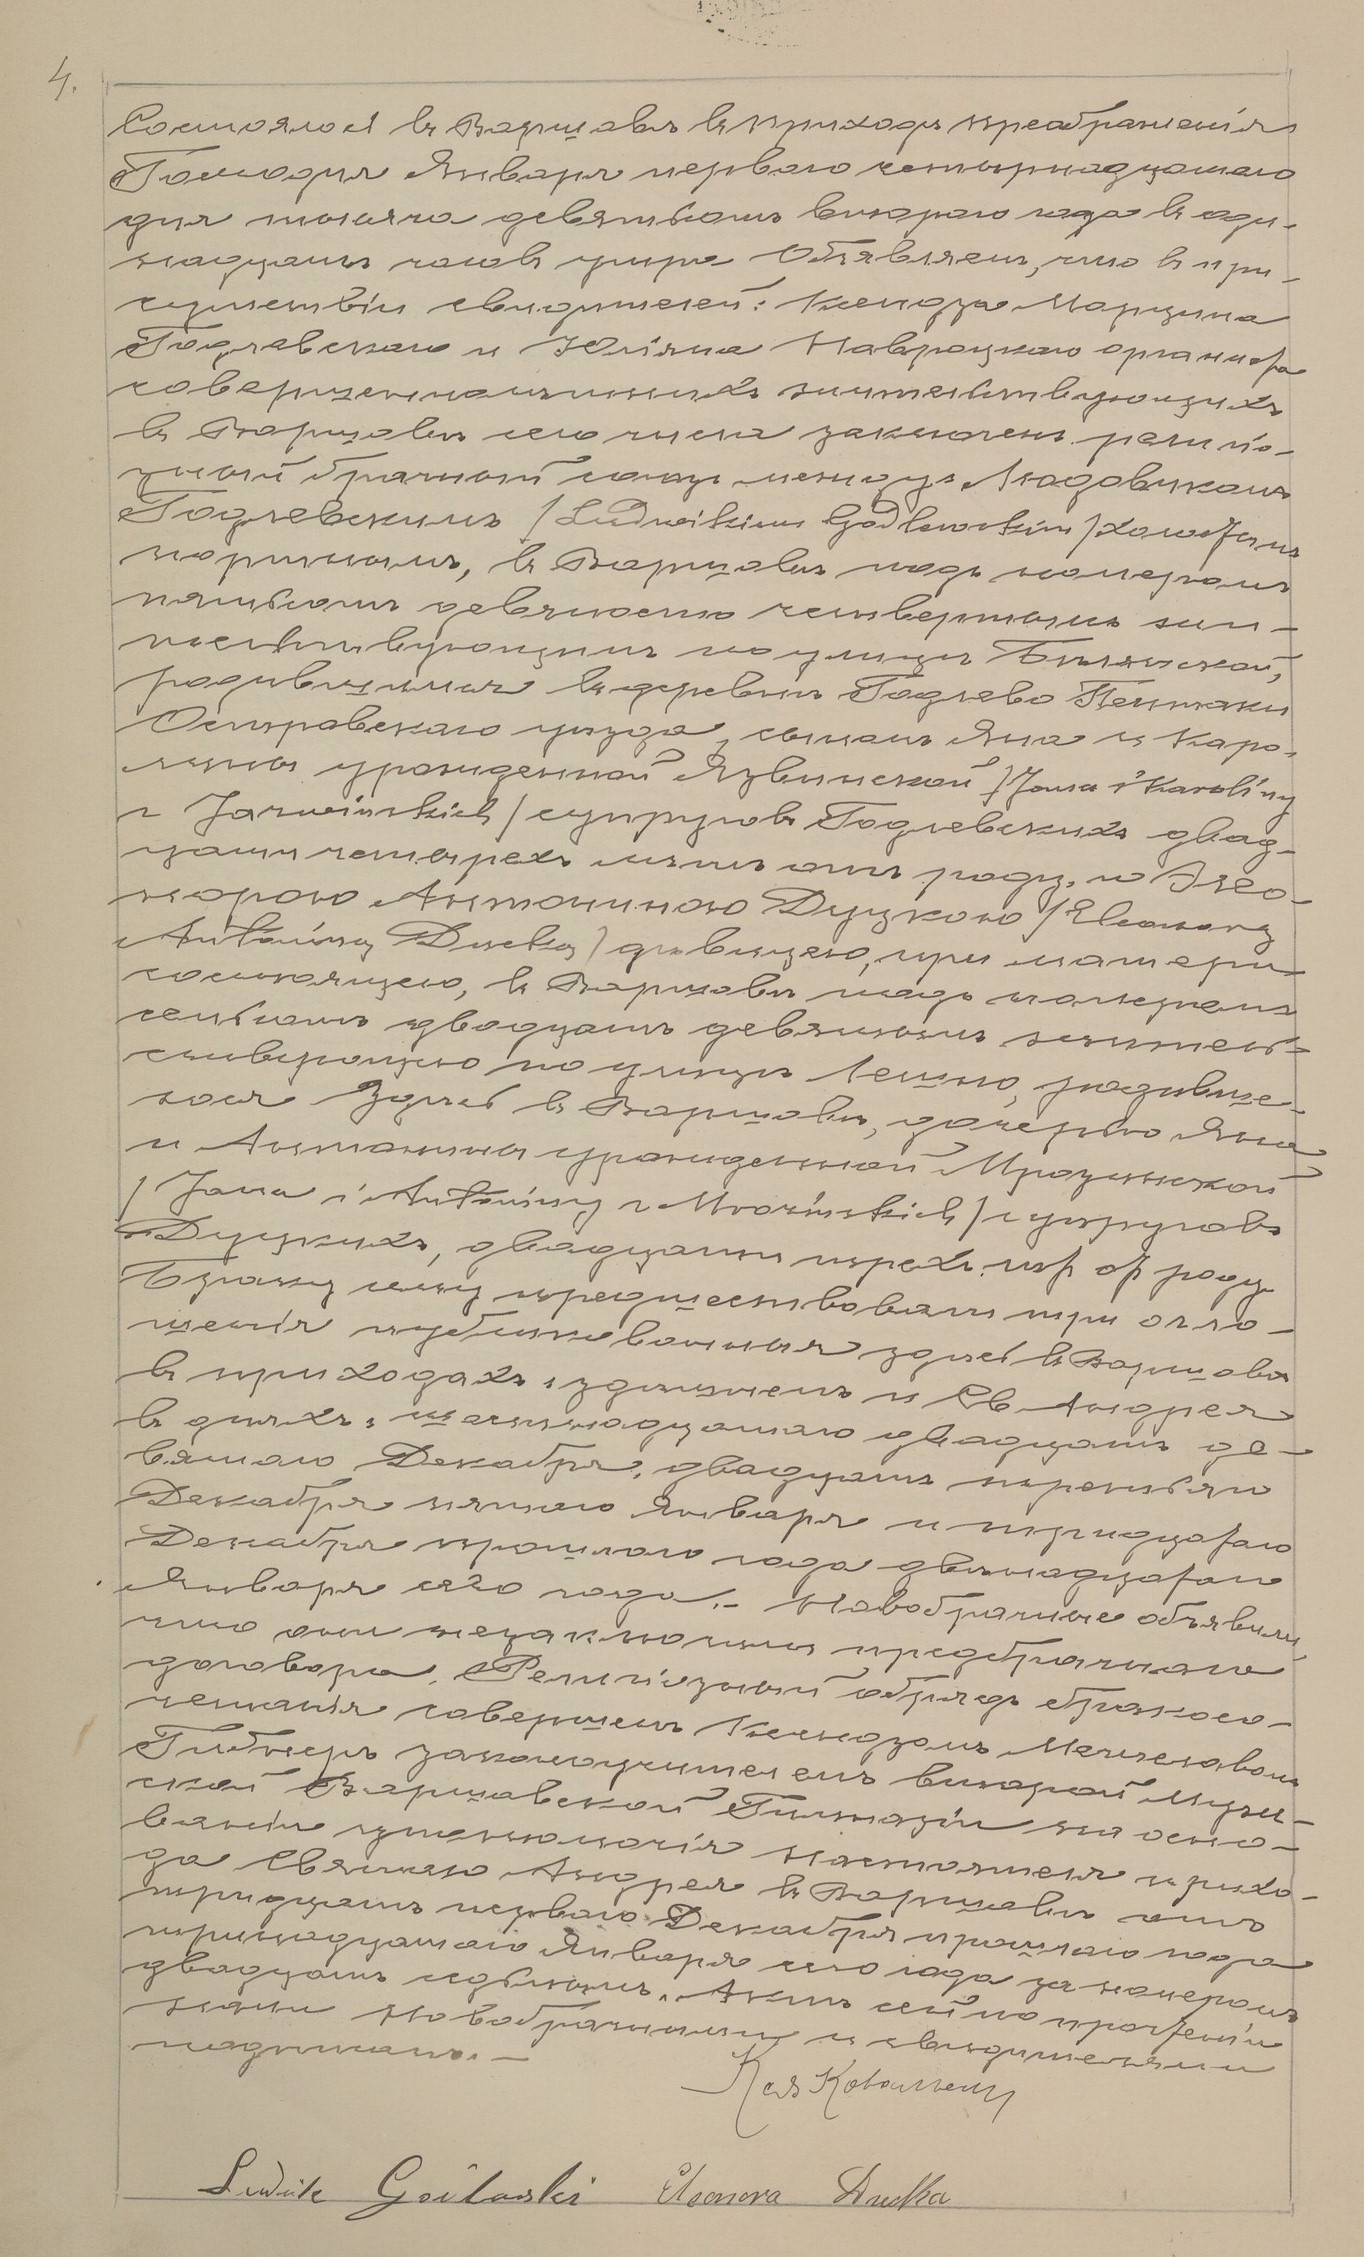 4.
Состоялось въ Варшавѣ въ приходѣ преображенія
Господня Января перваго четырнадцатаго
дня тысяча девятьсотъ втораго года въ оди-
надцать часовъ утра. Объявляемъ, что въ при-
сутствіи свидѣтелей: Ксендза Марцина
Годлевскаго и Юліяна Навроцкаго органиста
совершеннолѣтнихъ жительствующихъ
въ Варшавѣ сего числа заключенъ религіо-
зный брачный союзъ между: Людовикомъ
Годлевскимъ /Ludwikiem Godlewskim/ холостымъ
портнымъ, въ Варшавѣ подъ номеромъ
пятьсотъ девяносто четвертымъ жи-
тельствующимъ по улицѣ Бѣлянской,
родившимся въ деревнѣ Годлево Пенжаки
Островскаго уѣзда, сыномъ Яна и Каро-
лины урожденной Язвинской /Jana i Karoliny
z Jazwińskich/ супруговъ Годлевскихъ двад-
цати четырехъ лѣтъ отъ роду, и Элео-
норою Антониною Дуцкою /Eleonorą
Antoniną Ducką/ дѣвицею, при матери
состоящею, въ Варшавѣ подъ номеромъ
семьсотъ двадцать девятымъ жительс-
ствующею по улицѣ Лешно, родивше-
юся здѣсь въ Варшавѣ, дочерью Яна
и Антонины урожденной Мрозинской
/Jana i Antoniny z Mrozińskich/ супруговъ
Дуцкихъ, двадцати трехъ лѣт от роду
Браку сему предшествовали три огло-
шенія публикованныя здѣсь въ Варшавѣ
въ приходахъ: здѣшнемъ и Св Андрея
въ дняхъ: шестнадцатаго двадцать де-
вятаго Декабря, двадцать третьяго
Декабря пятаго Января и тридцатаго
Декабря прошлаго года двѣнадцатаго
Января сего года.- Новобрачные объявили,
что они незаключили предбрачнаго
договора. Религіозный обрядъ бракосо-
четанія совершенъ Ксендзомъ Мечеславомъ
законоучителемъ второй Мужс-
ской Варшавской Гимназіи на осно-
ваніи уполномочія Настоятеля прихо-
да Святаго Андрея въ Варшавѣ отъ
тридцать перваго Декабря прошлаго года
тринадцатаго Января сего года за номеромъ
двадцать седьмымъ. Актъ сей по прочтеніи
нами Новобрачными и свидѣтелями
подписанъ.-
Ludwik Godlewski Eleonora Ducka